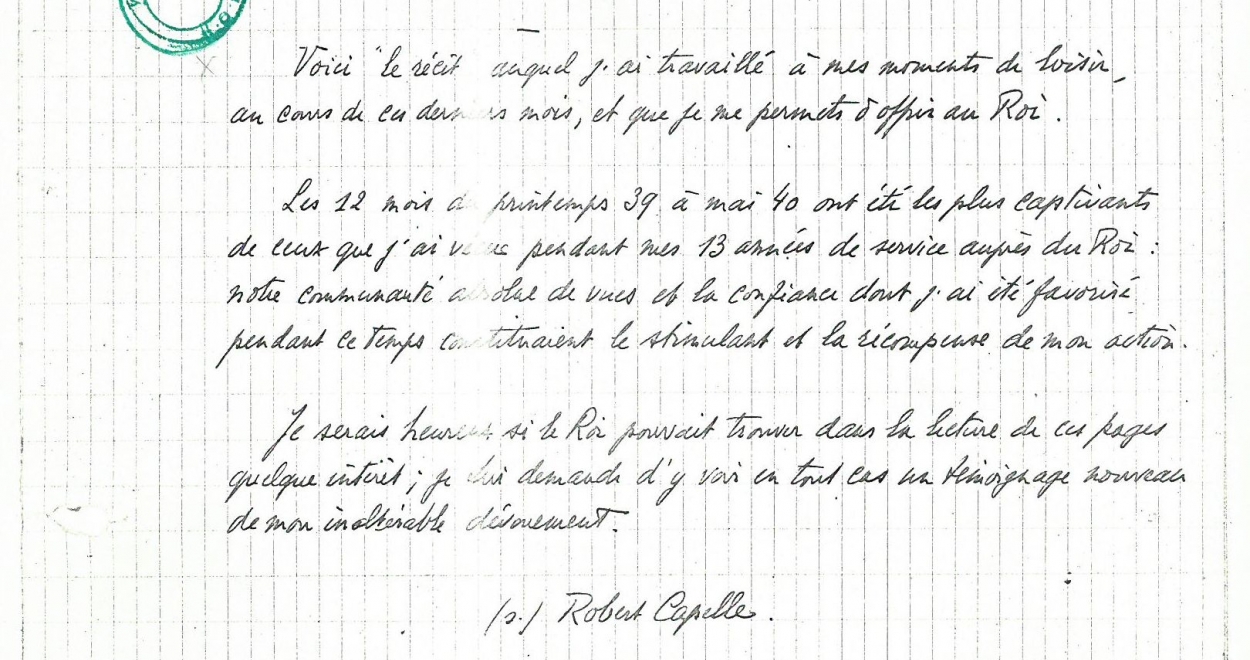 Voici le récit auquel j'ai travaillé à mes moments de loisir,
au cours de ces derniers mois, et que je me permets d'offrir au Roi.
Les 12 mois de printemps 39 à mai 40 ont été les plus captivants
de ceux que j'ai vécus pendant mes 13 années de service auprès du Roi :
notre communauté absolue de vues et la confiance dont j'ai été favorisé
pendant ce temps constituaient le stimulant et la récompense de mon action.
Je serais heureux si le Roi pouvait trouver dans la lecture de ces pages
quelque intérêt ; je lui demande d'y voir en tout cas un témoignage nouveau
de mon inaltérable dévouement.
(s.) Robert Capelle.